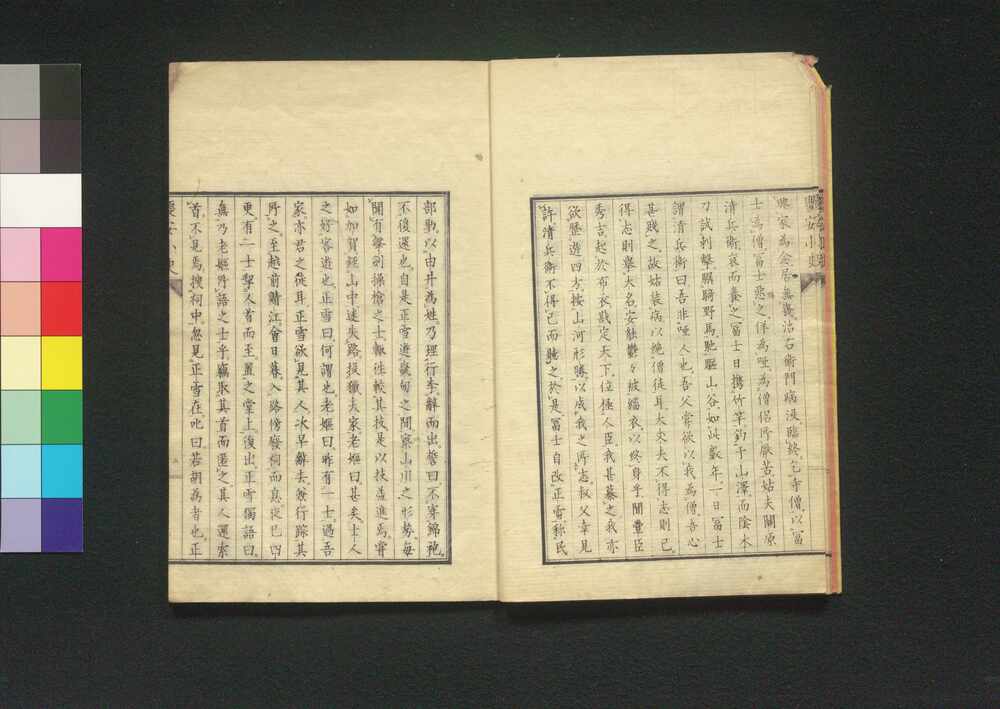 慶安小史
輿家為金居無幾治右衛門病漫臨終乞寺僧以富
士為僧富士惡之佯為啞為僧侶所厭苦姑夫關原
清兵衛哀而養之冨士日携竹竿釣于山澤而陰木
刀試刺擊騾騎野馬馳驅山谷如此數年一日冨士
謂清兵衛曰吾非啞人也吾父常欲以我為僧吾心
甚賤之故姑裝病以絶僧徒耳大丈夫不得志則已
得志則舉大名安能鬱々被緇衣以終身乎聞豊臣
秀吉起於布衣戡定天下位極人臣我甚慕之我亦
欲歷遊四方按山河形勝以成我之所志叔父幸見
許清兵衛不得已而聽之於是冨士自改正雪稱民
部勁以由井為姓乃理行李辭而出誓曰不穿錦袍
不復還也自是正雪遊畿甸之間察山川之形勢每
聞有擊劍操槍之士輙往較其技是以技益進焉嘗
如加賀經山中迷失路投獵夫家老嫗曰甚矣士人
之好客遊也正雪曰何謂也老嫗曰昨有一士過吾
家亦君之徒耳正雪欲見其人次早辭去發行踪其
所之至越前鯖江會日暮入路傍廢祠而息夜已四
更有一士挈人首而至置之堂上復出正雪獨語曰
無乃老嫗所語之士乎竊取其首而匿之其人還索
首不見焉搜祠中忽見正雪在叱曰若胡為者也正
慶安小史